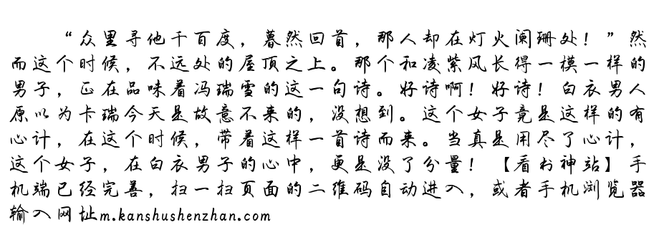 “众里寻他千百度，暮然回首，那人却在灯火阑珊处！”然
而这个时候，不远处的屋顶之上。那个和凌紫风长得一模一样的
男子，正在品味着冯瑞雪的这一句诗。好诗啊！好诗！白衣男人
原以为卡瑞今天是故意不来的，没想到。这个女子竟是这样的有
心计，在这个时候，带着这样一首诗而来。当真是用尽了心计，
这个女子，在白衣男子的心中，更是没了分量！【看书神站】手
机端已经完善，扫一扫页面的二维码自动进入，或者手机浏览器
输入网址m.kanshushenzhan.com